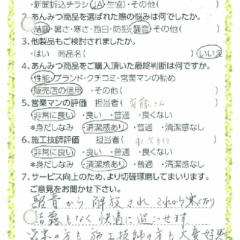 ・新聞折込チラシ・JA・生協・その他(
2.あんみつ商品を選ばれた際の悩みは何でしたか。
結露・暑さ・寒さ・西日・防犯・騒音・その他(
3.他製品もご検討されましたか。
はい(　　　　)・いいえ
4.あんみつ商品をご購入頂いた最終判断は何ですか。
性能・ブランド・クチコミ・営業マンの勧め
販売店の信用・その他(
5.営業マンの評価　担当者(
非常に良い・良い・普通・
*身だしなみ　清潔感あり・普通・清潔感なし
6.施工技師評価　担当者(
非常に良い・良い・普通・
*身だしなみ　清潔感あり・普通・清潔感なし
7.サービス向上のため、より切磋琢磨してまいります。
ご意見をお聞かせ下さい。
騒音から解放され これから寒くなり
結露もなく快適に過ごせます
営業の方も施工技師の方も大変